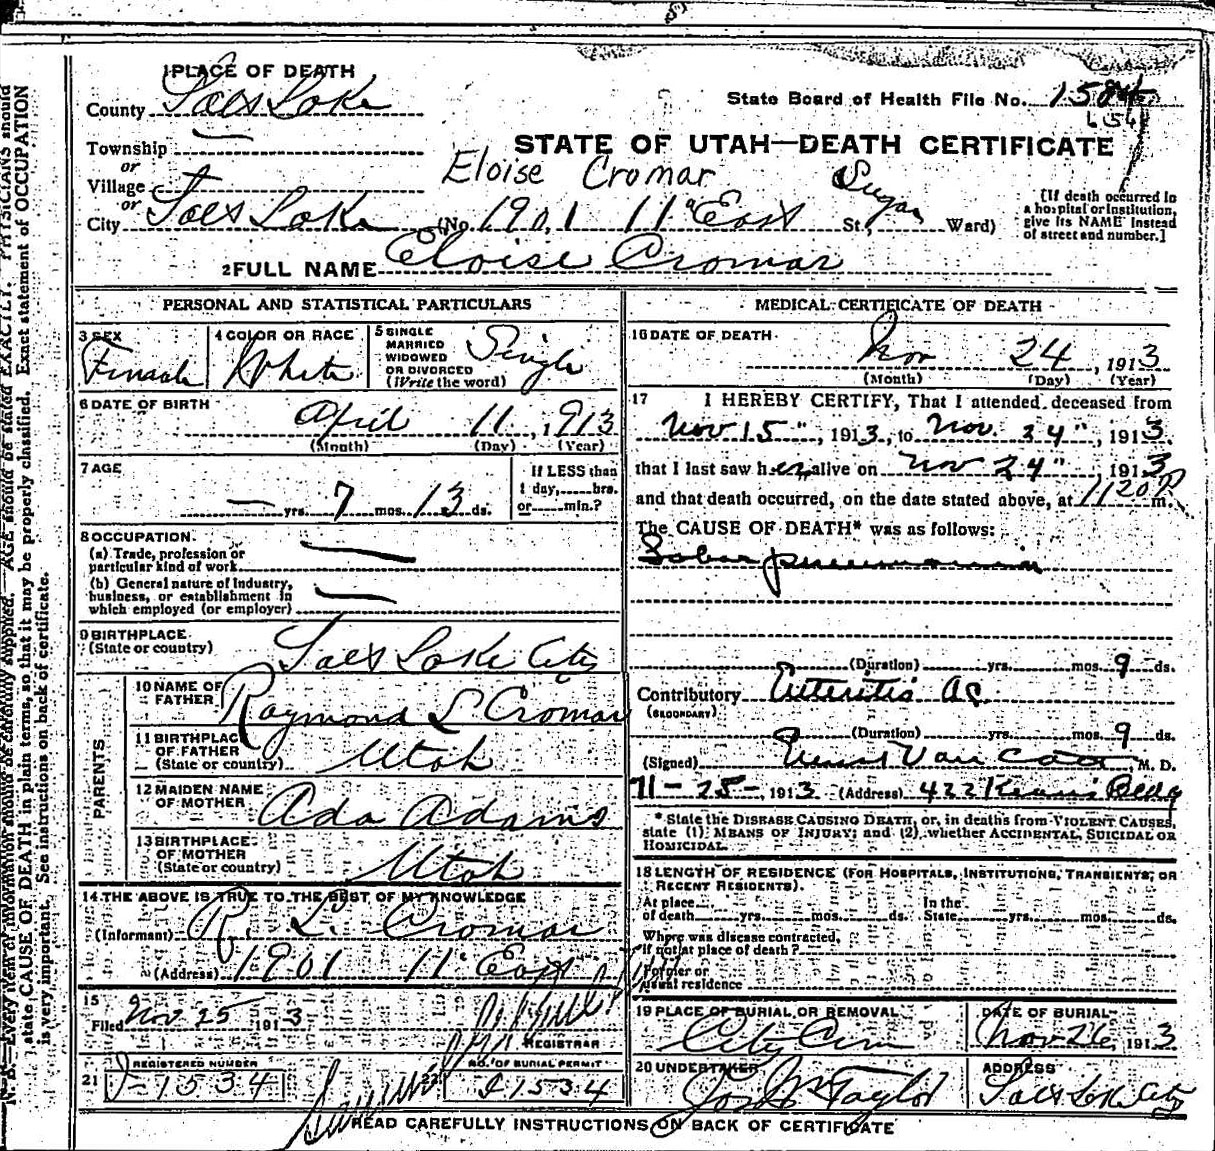 1 PLACE OF DEATH
County Salt Lake
State Board of Health File No. 1584
Township —
STATE OF UTAH—DEATH CERTIFICATE
or
Village
Eloise Cromar
or
City Salt Lake (No. 1901 11" East St., Sugar Ward)
[If death occurred in
a hospital or institution,
give its NAME instead
of street and number.]
2 FULL NAME Eloise Cromar
PERSONAL AND STATISTICAL PARTICULARS
3 SEX Female
4 COLOR OR RACE White
5 SINGLE
MARRIED
WIDOWED
OR DIVORCED
(Write the word) Single
6 DATE OF BIRTH April 11, 1913
(Month) (Day) (Year)
7 AGE
— yrs. 7 mos. 13 ds.
If LESS than
1 day, hrs.
or min.?
8 OCCUPATION
(a) Trade, profession or
particular kind of work —
(b) General nature of industry,
business, or establishment in
which employed (or employer) —
9 BIRTHPLACE
(State or country) Salt Lake City
PARENTS
10 NAME OF
FATHER Raymond L Cromar
11 BIRTHPLACE
OF FATHER
(State or country) Utah
12 MAIDEN NAME
OF MOTHER Ada Adams
13 BIRTHPLACE
OF MOTHER
(State or country) Utah
14 THE ABOVE IS TRUE TO THE BEST OF MY KNOWLEDGE
(Informant) R. L. Cromar
(Address) 1901 11" East
15
Filed Nov 25 1913
REGISTRAR
21
REGISTERED NUMBER
J-1534
NO. OF BURIAL PERMIT
J1534
MEDICAL CERTIFICATE OF DEATH
16 DATE OF DEATH
Nov 24, 1913
(Month) (Day) (Year)
17 I HEREBY CERTIFY, That I attended deceased from
Nov 15", 1913, to Nov. 24", 1913.
that I last saw her alive on Nov 24" 1913
and that death occurred, on the date stated above, at 1120 P m.
The CAUSE OF DEATH* was as follows:
Lobar pneumonia
(Duration) yrs. mos. 9 ds.
Contributory Enteritis ac.
(SECONDARY)
(Duration) yrs. mos. 9 ds.
(Signed) Ernest Van Cott, M. D.
11-25-, 1913 (Address) 422 Kearns Bldg
* State the DISEASE CAUSING DEATH, or, in deaths from VIOLENT CAUSES,
state (1) MEANS OF INJURY; and (2) whether ACCIDENTAL, SUICIDAL OR
HOMICIDAL.
18 LENGTH OF RESIDENCE (FOR HOSPITALS, INSTITUTIONS, TRANSIENTS, OR
RECENT RESIDENTS).
At place
of death yrs. mos. ds.
In the
State yrs. mos. ds.
Where was disease contracted,
if not at place of death?
Former or
usual residence
19 PLACE OF BURIAL OR REMOVAL
City Cem
DATE OF BURIAL
Nov 26, 1913
20 UNDERTAKER
Jos. Wm Taylor
ADDRESS
Salt Lake City
READ CAREFULLY INSTRUCTIONS ON BACK OF CERTIFICATE
N. B.—Every item of information should be carefully supplied. AGE should be stated EXACTLY. PHYSICIANS should
state CAUSE OF DEATH in plain terms, so that it may be properly classified. Exact statement of OCCUPATION
is very important. See instructions on back of certificate.